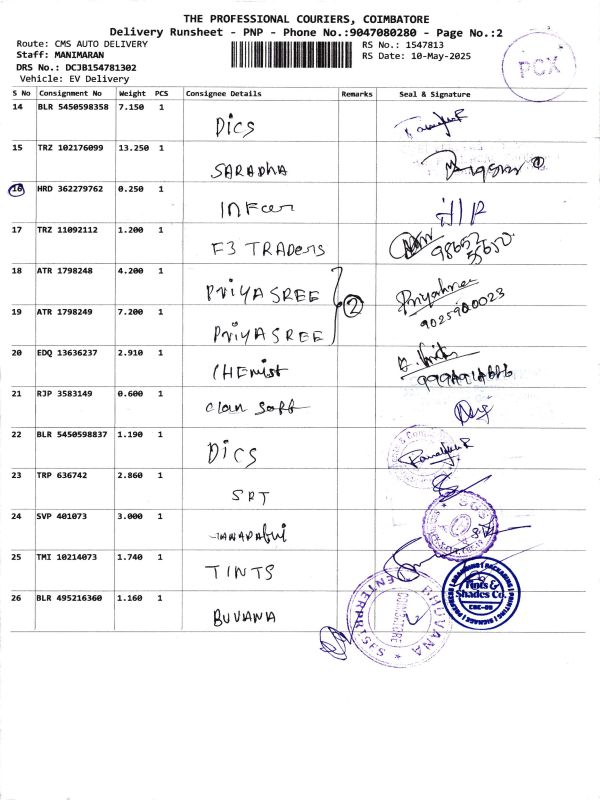 THE PROFESSIONAL COURIERS, COIMBATORE
Delivery Runsheet - PNP - Phone No.:9047080280 - Page No.:2
Route: CMS AUTO DELIVERY
RS No.: 1547813
Staff: MANIMARAN
RS Date: 10-May-2025
DRS No.: DCJB154781302
Vehicle: EV Delivery
PCX
S No Consignment No Weight PCS Consignee Details Remarks Seal & Signature
14 BLR 5450598358 7.150 1
DICS
15 TRZ 102176099 13.250 1
SARADHA
16 HRD 362279762 0.250 1
17 TRZ 11092112 1.200 1
F3 TRADERS
18 ATR 1798248 4.200 1
PRIYASREE
2
19 ATR 1798249 7.200 1
PRIYASREE
9025900023
20 EDQ 13636237 2.910 1
CHEMIST
21 RJP 3583149 0.600 1
22 BLR 5450598837 1.190 1
DICS
23 TRP 636742 2.860 1
SRT
24 SVP 401073 3.000 1
25 TMI 10214073 1.740 1
TINTS
Tints &
Shades Co.
26 BLR 495216360 1.160 1
BUVANA
BHUVANA ENTERPRISES
COIMBATORE